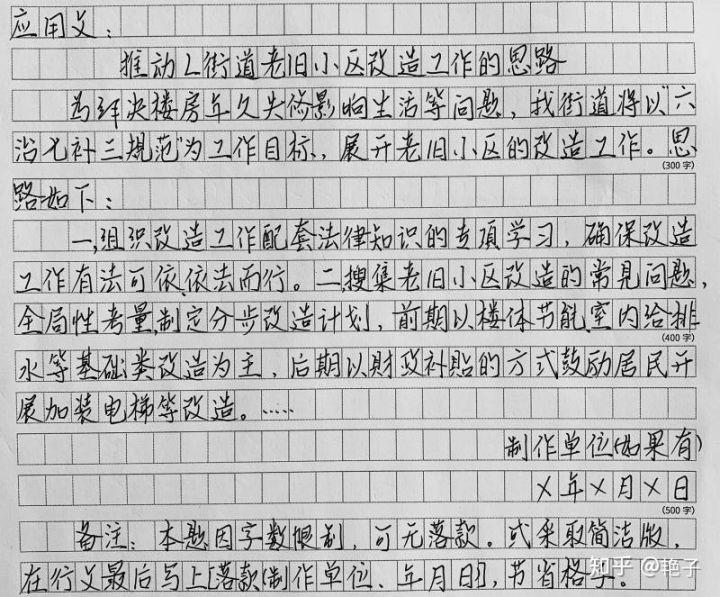 应用文：
推动L街道老旧小区改造工作的思路
为解决楼房年久失修影响生活等问题，我街道将以“六
治七补三规范”为工作目标，展开老旧小区的改造工作。思
(300字)
路如下：
一、组织改造工作配套法律知识的专项学习，确保改造
工作有法可依、依法而行。二、搜集老旧小区改造的常见问题，
全局性考量，制定分步改造计划，前期以楼体节能、室内给排
(400字)
水等基础类改造为主，后期以财政补贴的方式鼓励居民开
展加装电梯等改造。……
制作单位(如果有)
X年X月X日
(500字)
备注：本题因字数限制，可无落款。或采取简洁版，
在行文最后写上[落款(制作单位、年月日)]，节省格子。
知乎 @艳子